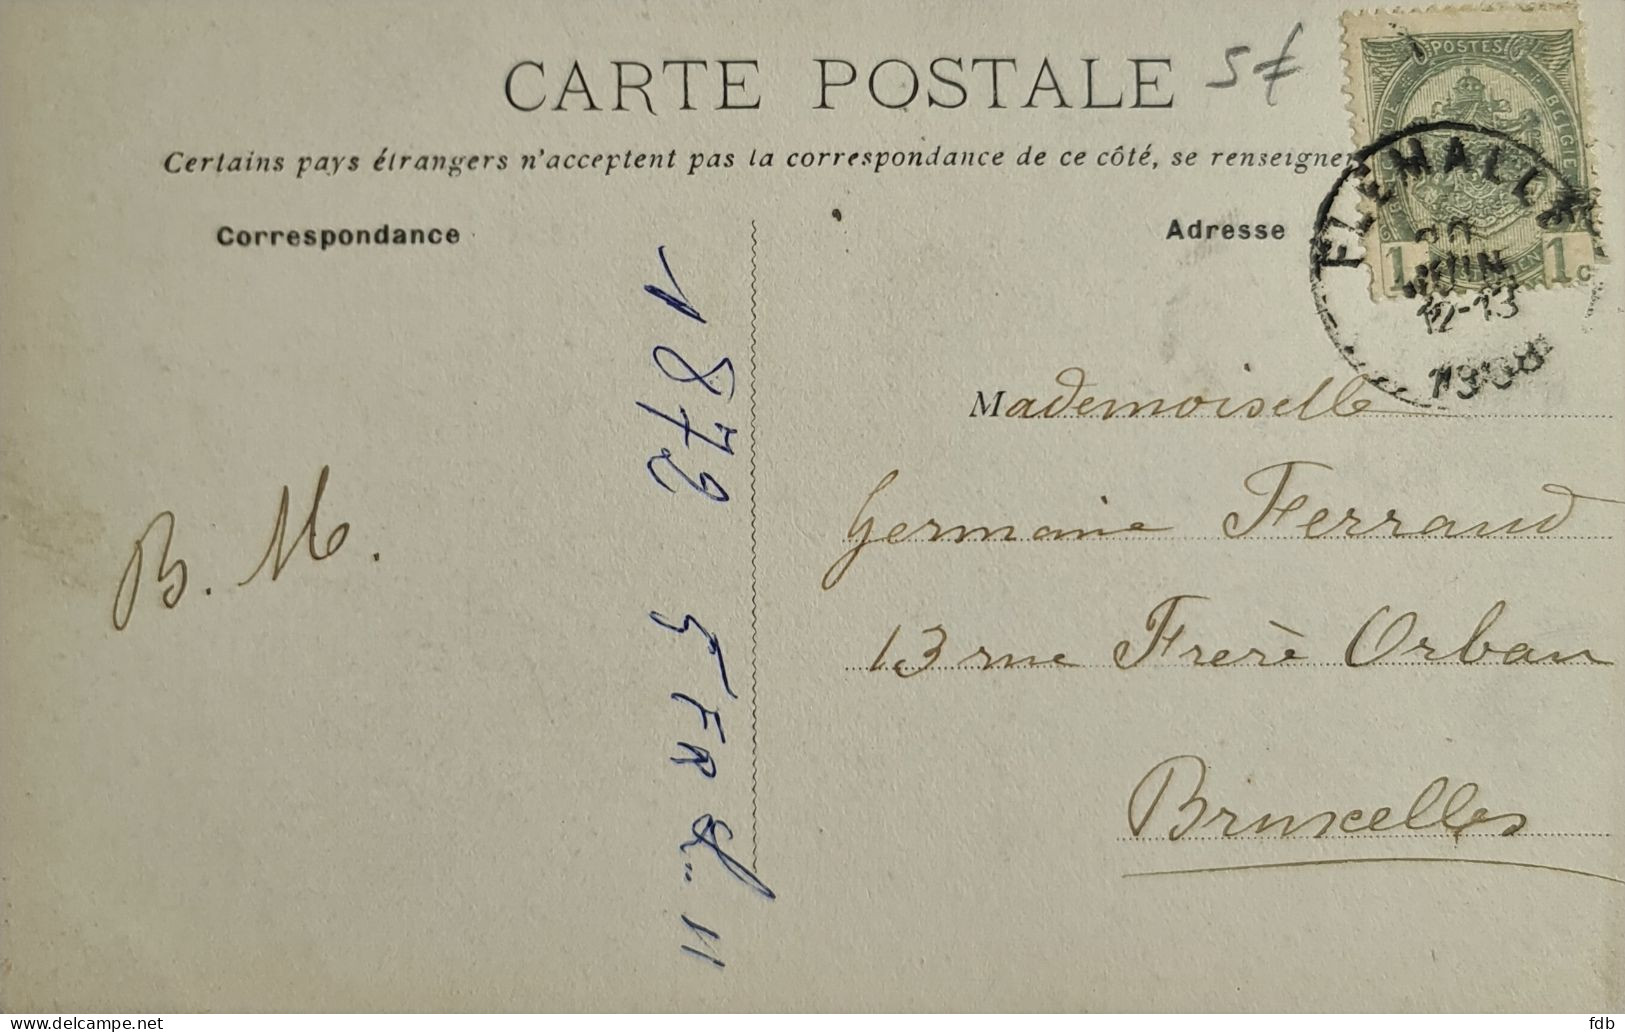 CARTE POSTALE
5f
Certains pays étrangers n'acceptent pas la correspondance de ce côté, se renseigner
POSTES
BELGIE
1 1c
FLEMALLE
JUIN
12-13
1908
Correspondance
Adresse
Mademoiselle
Germaine Ferraud
13 rue Frerè Orban
Bruxelles
B. M.
1872 5 FR
11
fdb